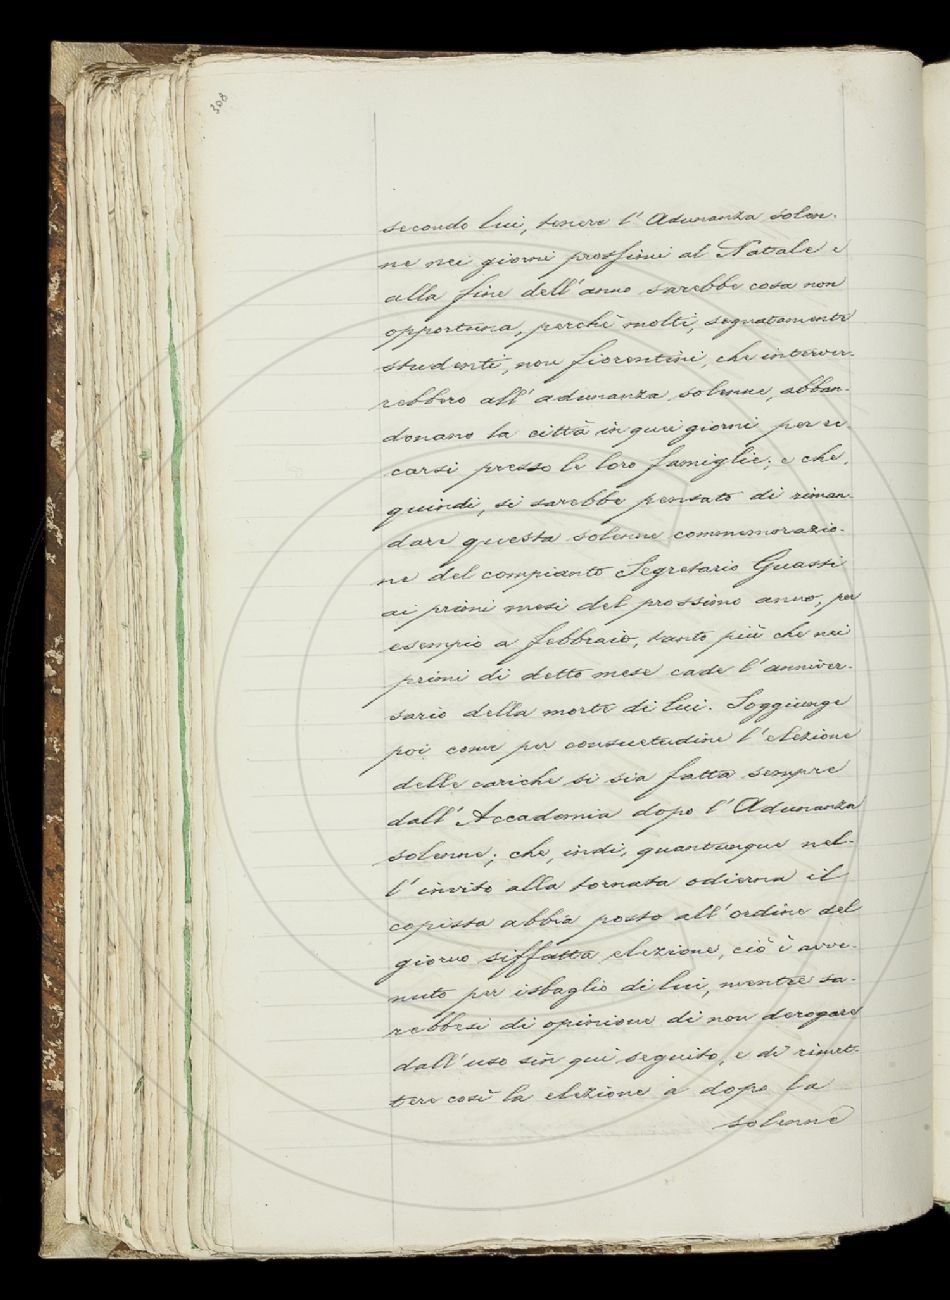 308
secondo lui, tenere l'Adunanza solen-
ne nei giorni prossimi al Natale e
alla fine dell'anno sarebbe cosa non
opportuna, perchè molti, segnatamente
studenti, non fiorentini, che interver-
rebbero all'adunanza solenne, abban-
donano la città in quei giorni per re-
carsi presso le loro famiglie; e che,
quindi, si sarebbe pensato di riman-
dare questa solenne commemorazio-
ne del compianto Segretario Guasti
ai primi mesi del prossimo anno, per
esempio a febbraio, tanto più che nei
primi di detto mese cade l'anniver-
sario della morte di lui. Soggiunge
poi come per consuetudine l'elezione
delle cariche si sia fatta sempre
dall'Accademia dopo l'Adunanza
solenne; che, indi, quantunque nel-
l'invito alla tornata odierna il
copista abbia posto all'ordine del
giorno siffatta elezione, ciò è avve-
nuto per isbaglio di lui, mentre sa-
rebbesi di opinione di non derogare
dall'uso sin qui seguito, e di rimet-
tere così la elezione a dopo la
solenne